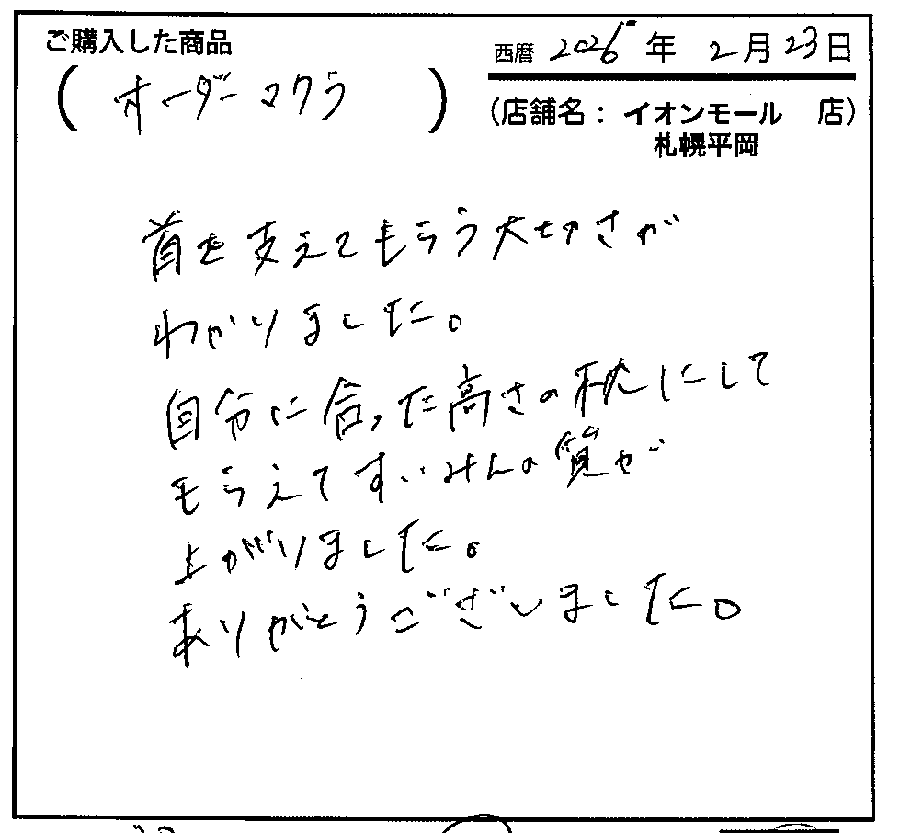 ご購入した商品
西暦 2026年 2月23日
(オーダーマクラ)
(店舗名：イオンモール 店)
札幌平岡
首を支えてもらう大切さが
わかりました。
自分に合った高さの枕にして
もらえてすいみんの質が
上がりました。
ありがとうございました。